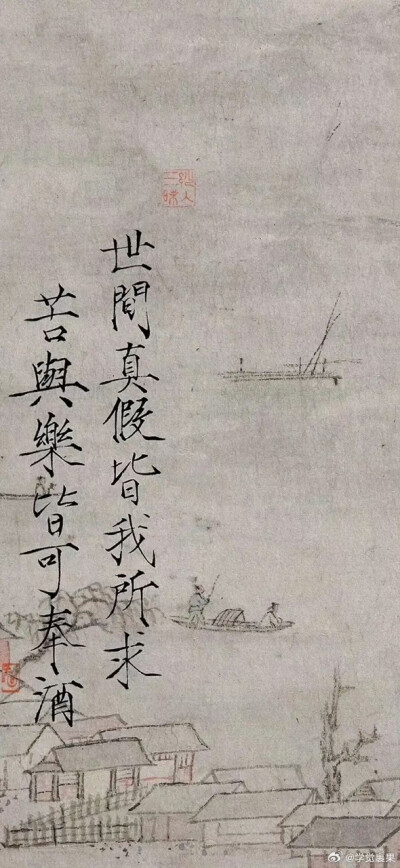 世間真假皆我所求
苦與樂皆可奉酒
@学觉裹果